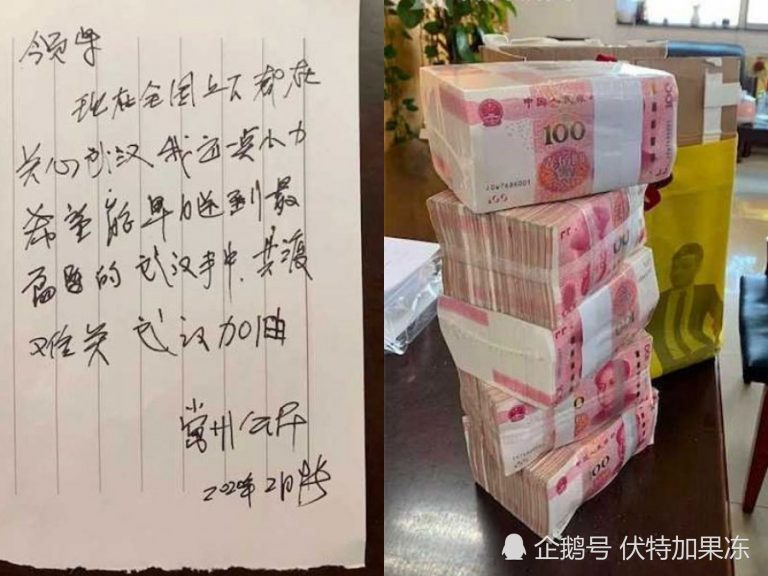 领导
现在全国上下都在
关心武汉 我 一点小力
希望 早 到最
需 的武汉手中,共渡
难关 武汉加油
常州公民
2020年2月
中国人民
100
100
100
100
100
企鹅号 伏特加果冻